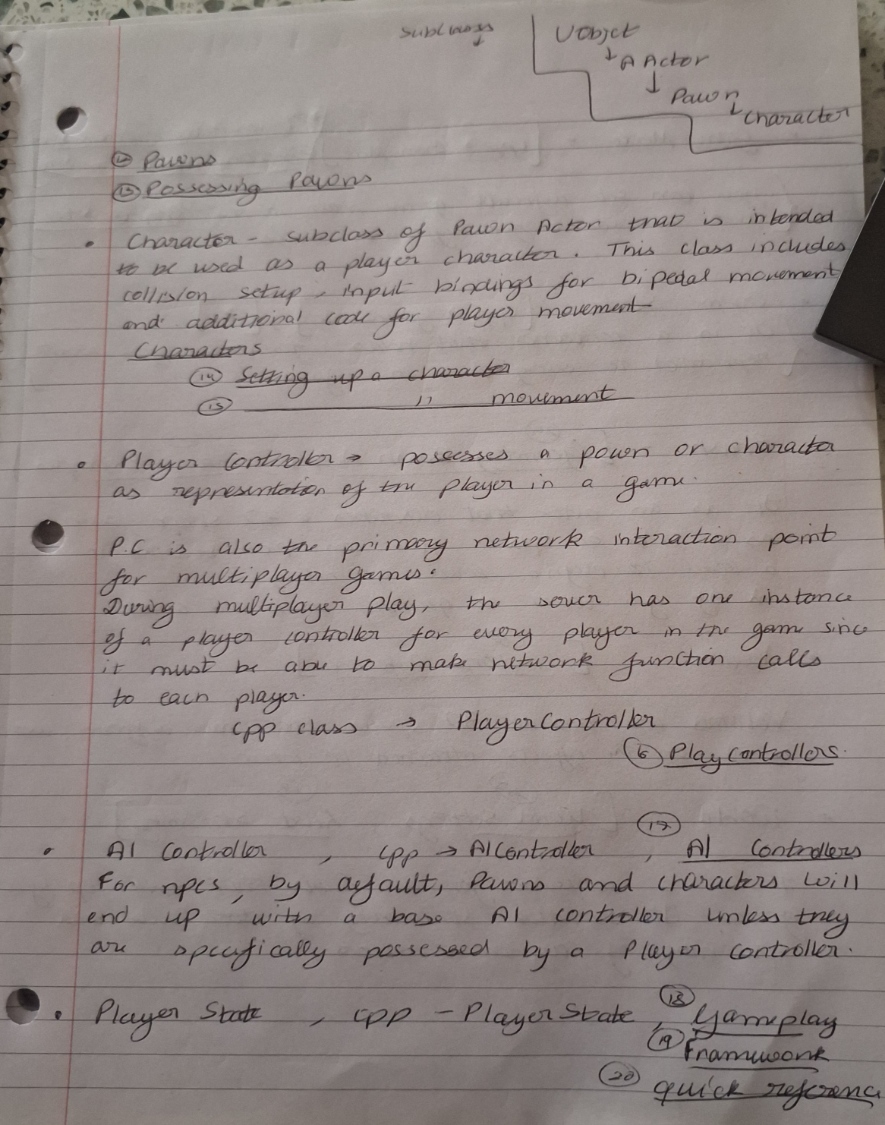 subclass
UObject
↓ A Actor
↓ Pawn
↓ Character
⑫ Pawns
⑬ Possessing Pawns
• Character - subclass of Pawn Actor that is intended
to be used as a player character. This class includes
collision setup, input bindings for bipedal movement
and additional code for player movement
Characters
⑭ Setting up a character
⑮ ———— " movement
• Player Controller → possesses a pawn or character
as representation of the player in a game.
P.C is also the primary network interaction point
for multiplayer games.
During multiplayer play, the sever has one instance
of a player controller for every player in the game since
it must be able to make network function calls
to each player.
cpp class → PlayerController
⑥ Playcontrollers.
• AI Controller , cpp → AIController , ⑰ AI Controllers
For npcs, by default, Pawns and characters will
end up with a base AI controller unless they
are specifically possessed by a Player controller.
• Player State , cpp - PlayerState , ⑱ Gameplay
⑲ Framework
⑳ quick referenc